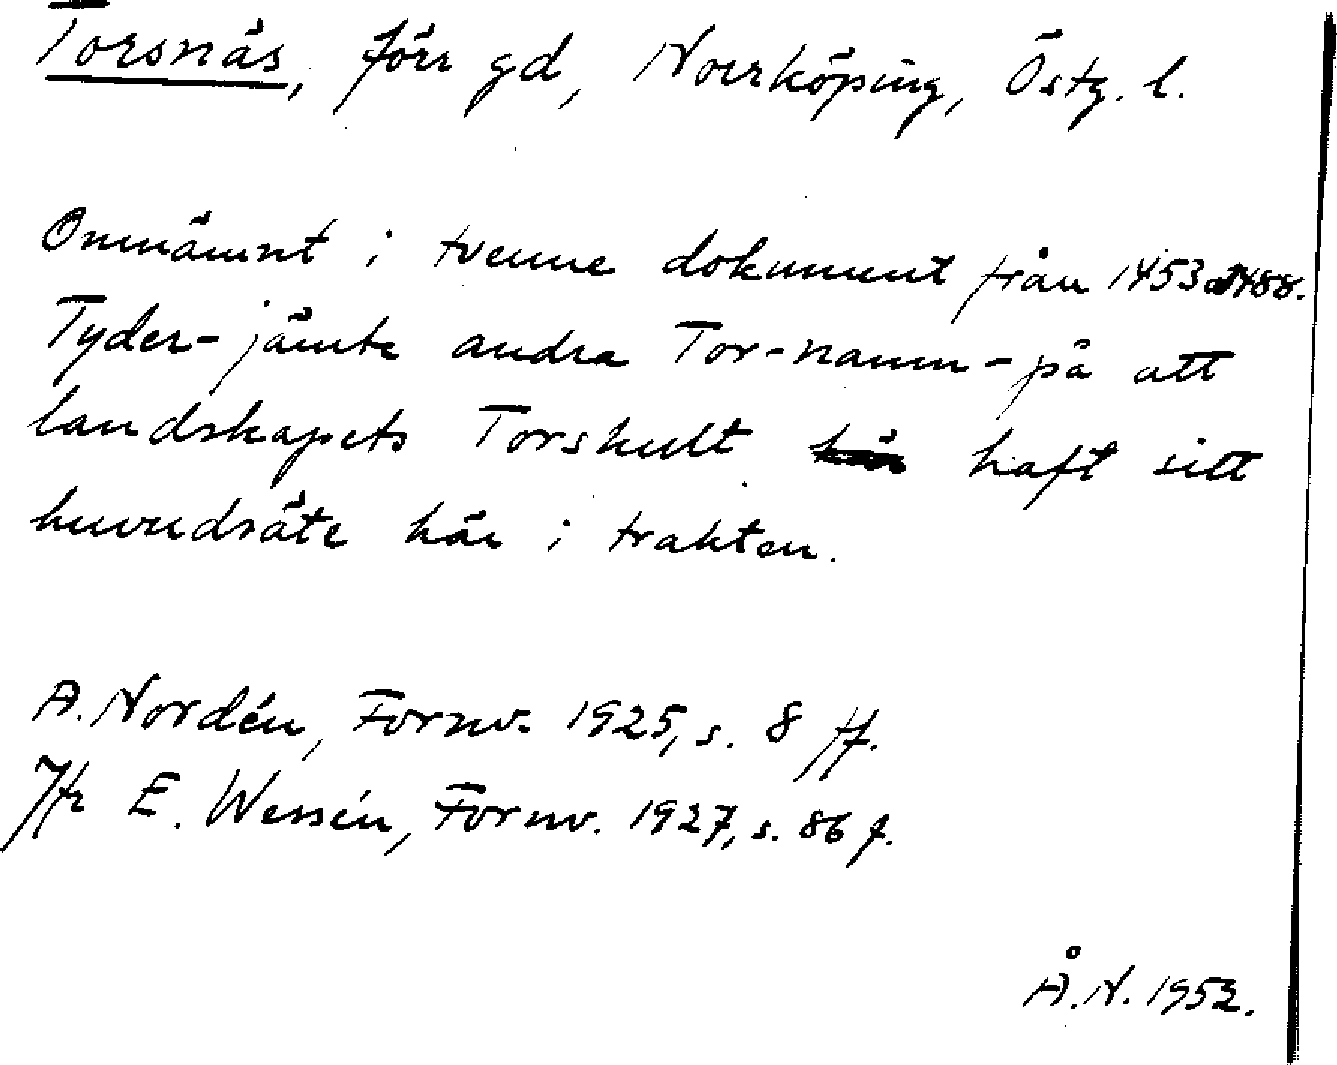 Torsnäs, förr gd, Norrköping, Östg. l.
Omnämnt i tvenne dokument från 1453 o. 1488.
Tyder - jämte andra Tor-namn - på att
landskapets Torskult haft sitt
huvudsäte här i trakten.
A. Nordén, Fornv. 1925, s. 8 ff.
Jfr E. Wessén, Fornv. 1927, s. 86 f.
Å.N. 1952.